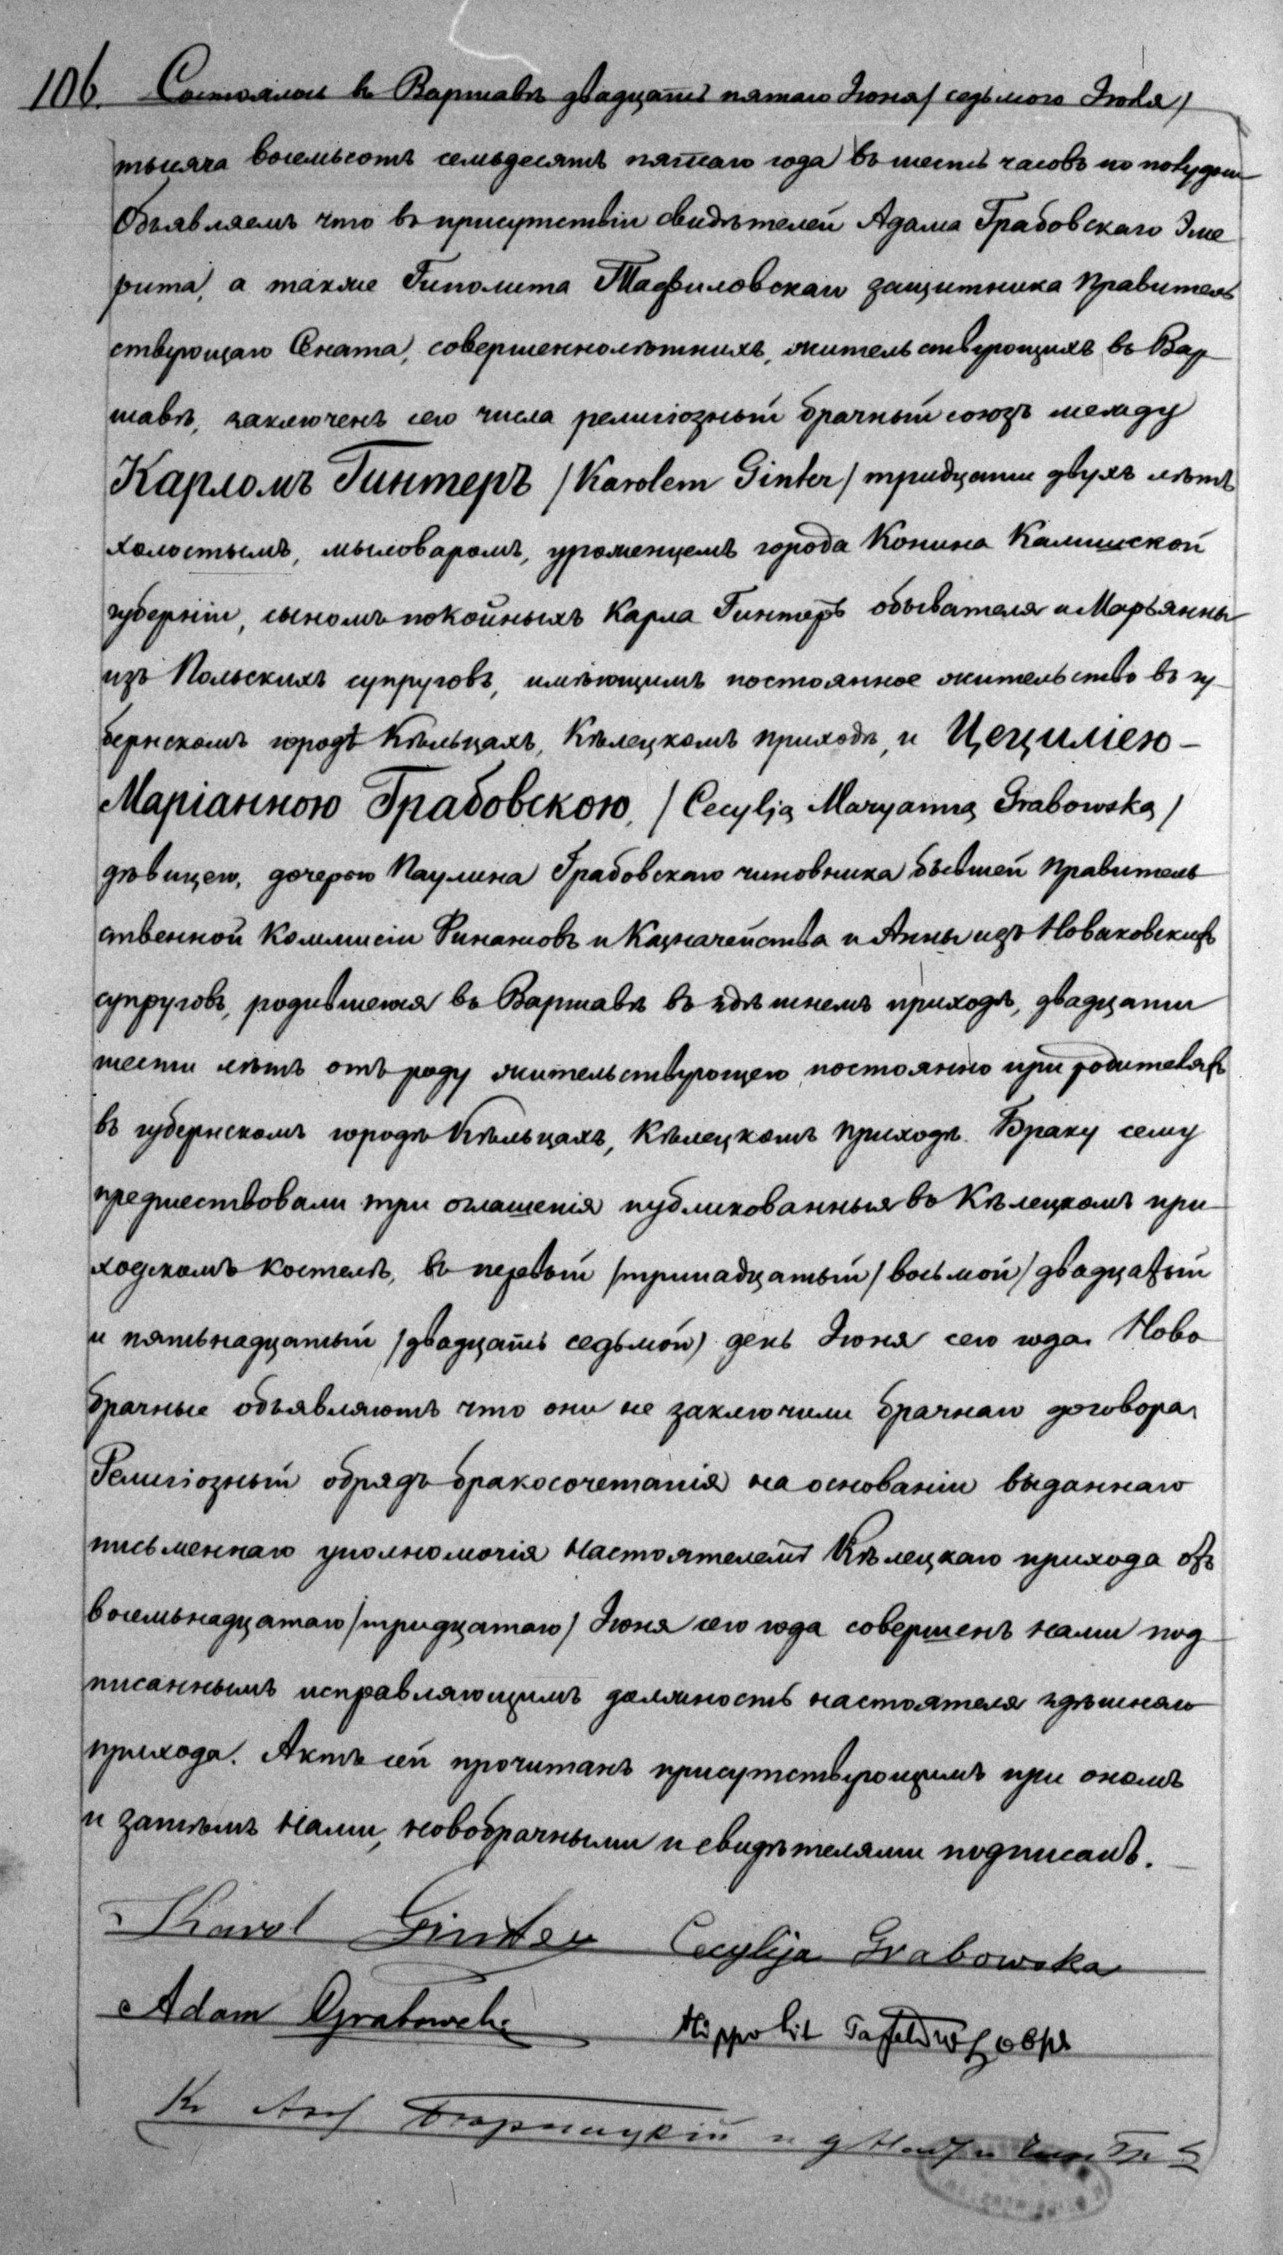 106. Состоялось въ Варшавѣ двадцать пятаго Іюня / седьмого Іюля /
тысяча восемьсотъ семьдесятъ пятаго года въ шесть часовъ по полудни
Объявляемъ что въ присутствіи свидѣтелей Адама Грабовскаго Эме
рита, а также Гиполита Тафиловскаго защитника Правитель
ствующаго Сената, совершеннолѣтнихъ, жительствующихъ въ Вар
шавѣ, заключенъ сего числа религіозный брачный союзъ между
Карломъ Гинтеръ / Karolem Ginter / тридцати двухъ лѣтъ
холостымъ, мыловаромъ, уроженцемъ города Конина Калишской
губерніи, сыномъ покойныхъ Карла Гинтеръ обывателя и Марьянны
изъ Польскихъ супруговъ, имѣющимъ постоянное жительство въ гу
бернскомъ городѣ Кѣльцахъ, Кѣлецкомъ приходѣ, и Цециліею-
Маріанною Грабовскою, / Cecylją Maryanną Grabowską /
дѣвицею, дочерою Паулина Грабовскаго чиновника бывшей Правитель
ственной Коммисіи Финансовъ и Казначейства и Анны изъ Новаковскихъ
супруговъ, родившеюся въ Варшавѣ въ здѣшнемъ приходѣ, двадцати
шести лѣтъ отъ роду жительствующею постоянно при родителяхъ
въ губернскомъ городѣ Кѣльцахъ, Кѣлецкомъ приходѣ. Браку сему
предшествовали три оглашенія публикованныя въ Кѣлецкомъ при
ходскомъ костелѣ, въ первый / тринадцатый / восьмой / двадцатый
и пятьнадцатый / двадцать седьмой / день Іюня сего года. Ново
брачные объявляютъ что они не заключили брачнаго договора.
Религіозный обрядъ бракосочетанія на основаніи выданнаго
письменнаго уполномочія Настоятелемъ Кѣлецкаго прихода отъ
восемьнадцатаго / тридцатаго / Іюня сего года совершенъ нами под
писаннымъ исправляющимъ должность настоятеля здѣшняго
прихода. Актъ сей прочитанъ присутствующимъ при ономъ
и затѣмъ Нами, новобрачными и свидѣтелями подписанъ.
Karol Ginter Cecylija Grabowska
Adam Grabowski Hippolit